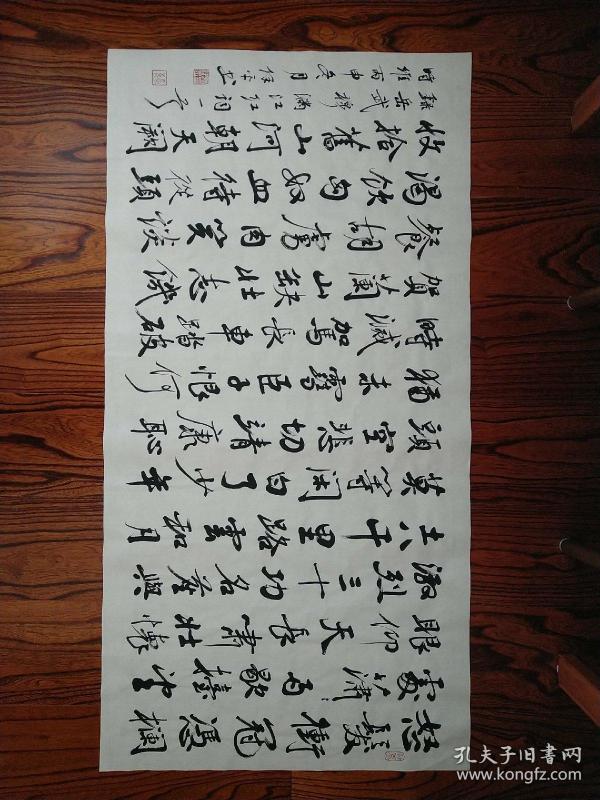 怒髮衝冠憑欄
處瀟雨歇擡望
眼仰天長嘯壯懷
激烈三十功名塵與
土八千里路雲和月
莫等閒白了少年
頭空悲切靖康恥
猶未雪臣子恨何
時滅駕長車踏破
賀蘭山缺壯志飢
餐胡虜肉笑談
渴飲匈奴血待從頭
收拾舊山河朝天闕
錄岳武穆滿江紅詞一首
時維丙申冬月
孔夫子旧书网
www.kongfz.com